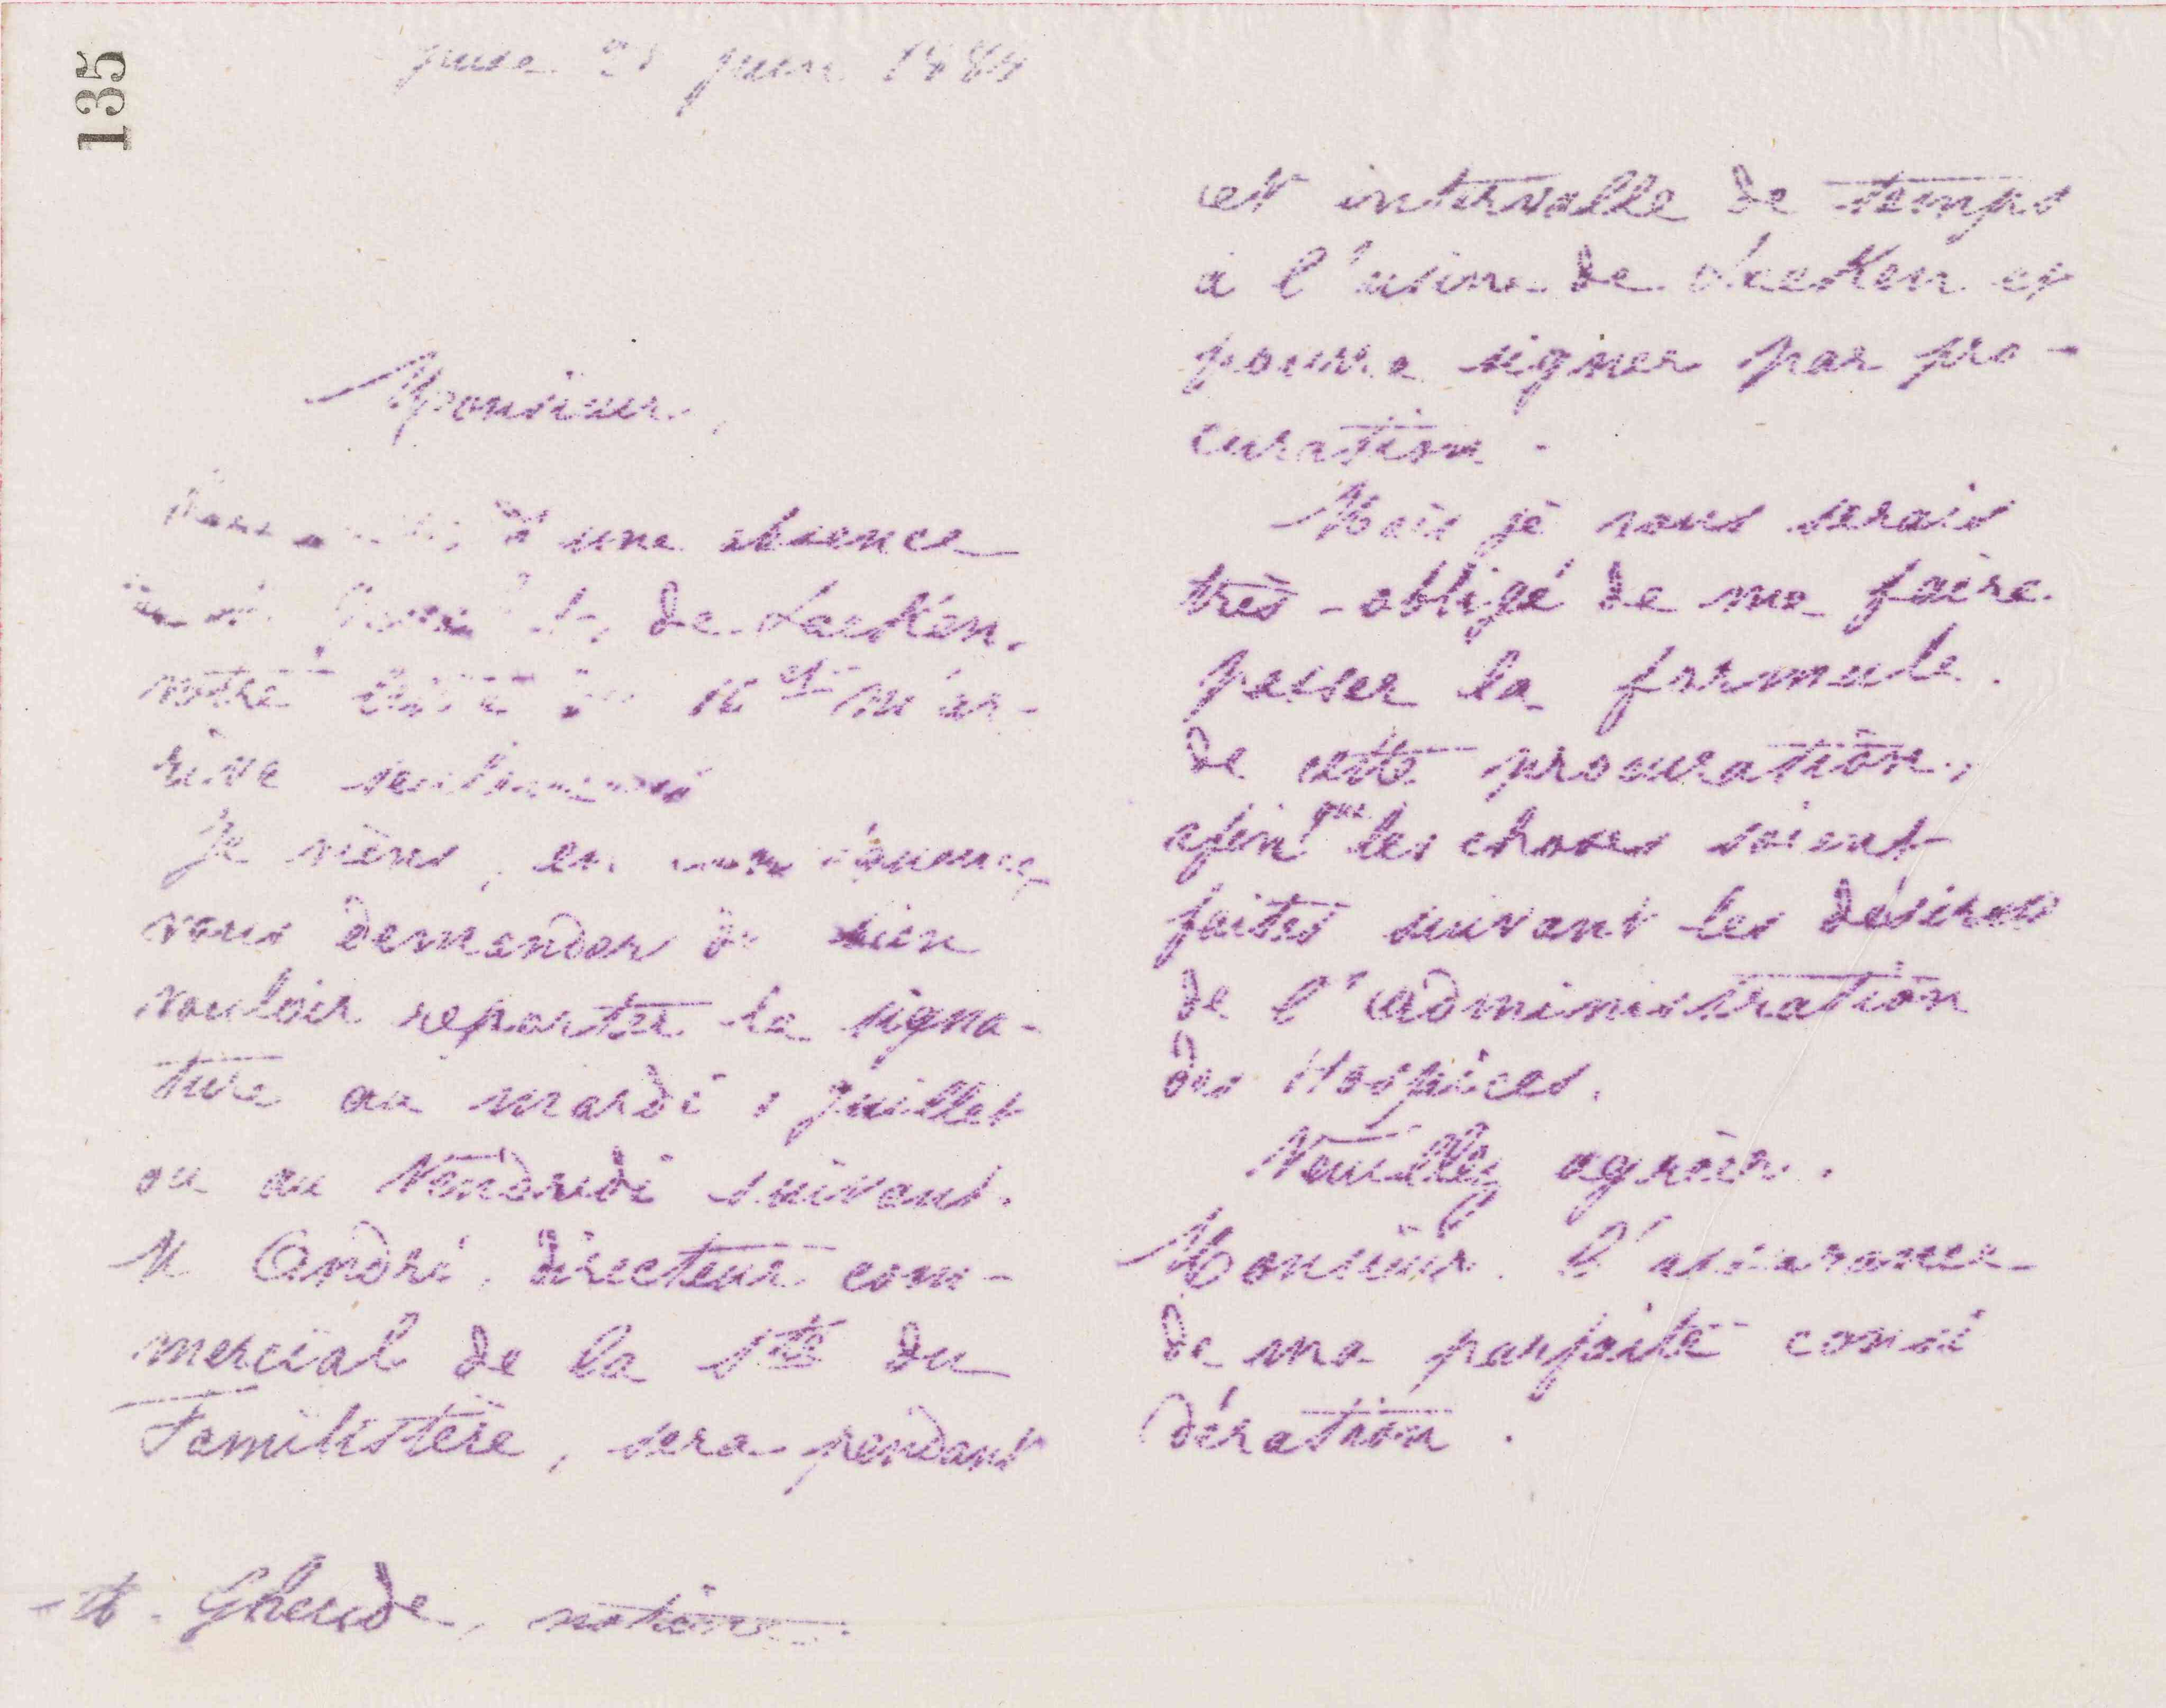 135
juin 1884
Monsieur,
d'une absence
de Laeken,
votre m'ar-
rive seulement
Je viens, en conséquence,
vous demander de bien
vouloir reporter la signa-
ture au mardi 1 juillet
ou au Vendredi suivant.
M André, directeur com-
mercial de la Sté du
Familistère, sera pendant
M. Gheude, notaire
cet intervalle de temps
à l'usine de Laeken et
pourra signer par pro-
curation.
Mais je vous serais
très-obligé de me faire
passer la formule
de cette procuration,
afin que les choses soient
faites suivant les désirs
de l'administration
des Hospices.
Veuillez agréer,
Monsieur, l'assurance
de ma parfaite consi
dération.